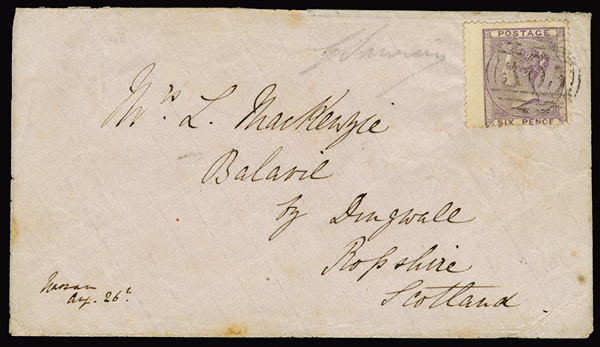 POSTAGE
SIX PENCE
Mrs L. MacKenzie
Balavil
by Dingwall
Rossshire
Scotland.
Nassau
Aug. 26t.